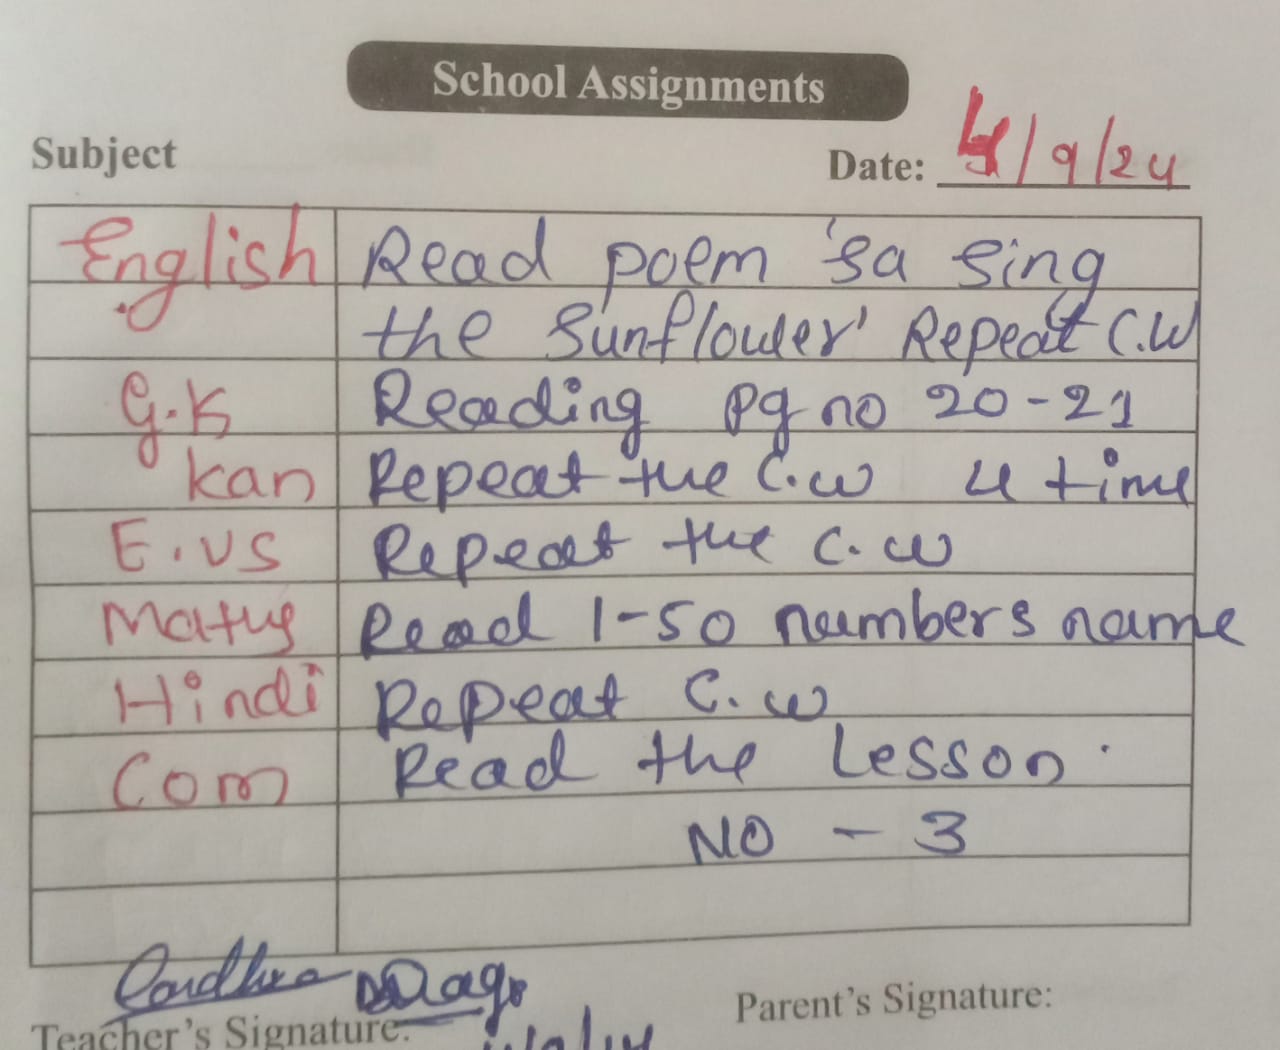 School Assignments
Subject
Date: 4/9/24
English Read poem 'sa sing
the sunflower' Repeat C.W
G.K Reading pg no 20-21
kan Repeat the C.W 4 time
E.VS Repeat the C.W
Maths Read 1-50 numbers name
Hindi Repeat C.W
Com Read the Lesson.
NO - 3
Parent's Signature:
Teacher's Signature: